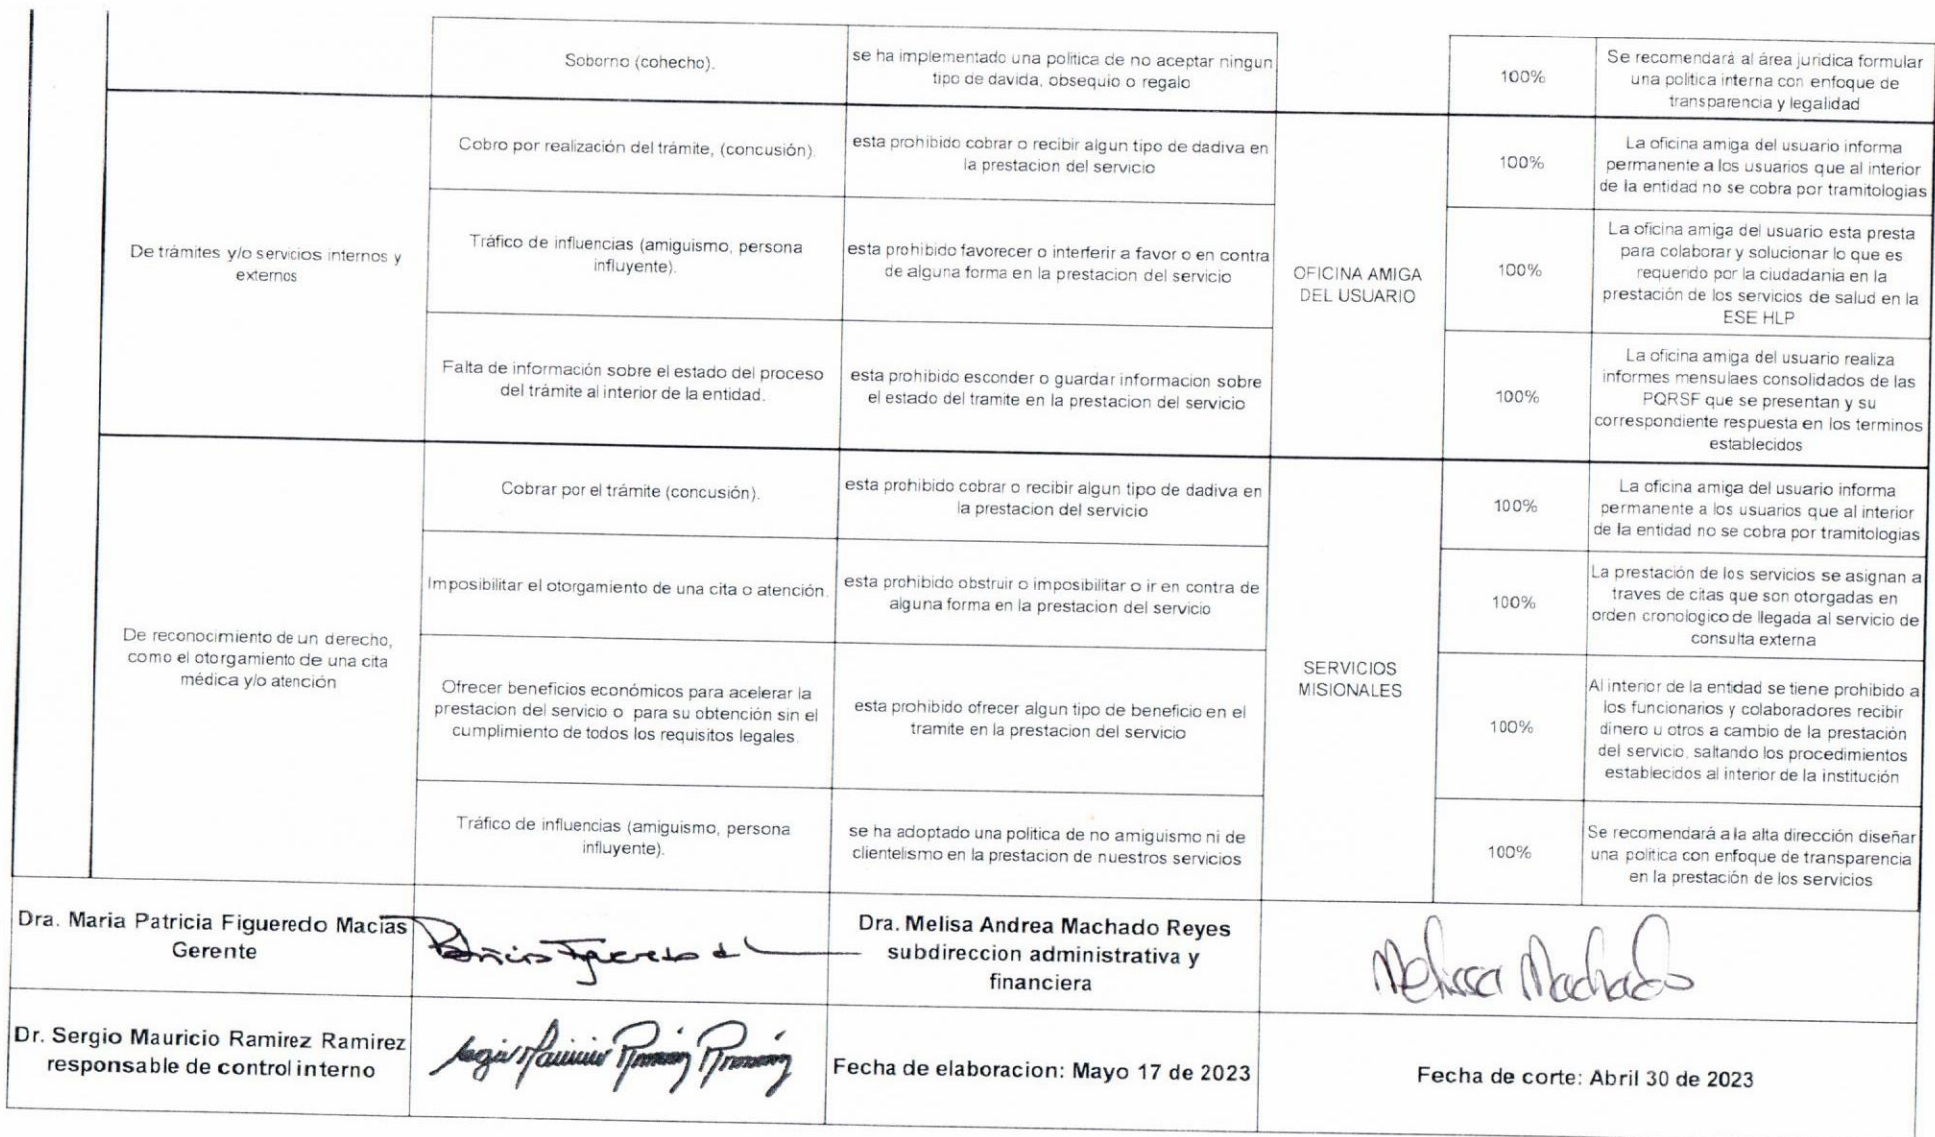 Soborno (cohecho).
se ha implementado una politica de no aceptar ningun
tipo de davida, obsequio o regalo
100%
Se recomendará al área juridica formular
una politica interna con enfoque de
transparencia y legalidad
De trámites y/o servicios internos y
externos
Cobro por realización del trámite, (concusión).
esta prohibido cobrar o recibir algun tipo de dadiva en
la prestacion del servicio
OFICINA AMIGA
DEL USUARIO
100%
La oficina amiga del usuario informa
permanente a los usuarios que al interior
de la entidad no se cobra por tramitologias
Tráfico de influencias (amiguismo, persona
influyente).
esta prohibido favorecer o interferir a favor o en contra
de alguna forma en la prestacion del servicio
100%
La oficina amiga del usuario esta presta
para colaborar y solucionar lo que es
requerido por la ciudadania en la
prestación de los servicios de salud en la
ESE HLP
Falta de información sobre el estado del proceso
del trámite al interior de la entidad.
esta prohibido esconder o guardar informacion sobre
el estado del tramite en la prestacion del servicio
100%
La oficina amiga del usuario realiza
informes mensulaes consolidados de las
PQRSF que se presentan y su
correspondiente respuesta en los terminos
establecidos
De reconocimiento de un derecho,
como el otorgamiento de una cita
médica y/o atención
Cobrar por el trámite (concusión).
esta prohibido cobrar o recibir algun tipo de dadiva en
la prestacion del servicio
SERVICIOS
MISIONALES
100%
La oficina amiga del usuario informa
permanente a los usuarios que al interior
de la entidad no se cobra por tramitologias
Imposibilitar el otorgamiento de una cita o atención.
esta prohibido obstruir o imposibilitar o ir en contra de
alguna forma en la prestacion del servicio
100%
La prestación de los servicios se asignan a
traves de citas que son otorgadas en
orden cronologico de llegada al servicio de
consulta externa
Ofrecer beneficios económicos para acelerar la
prestacion del servicio o para su obtención sin el
cumplimiento de todos los requisitos legales.
esta prohibido ofrecer algun tipo de beneficio en el
tramite en la prestacion del servicio
100%
Al interior de la entidad se tiene prohibido a
los funcionarios y colaboradores recibir
dinero u otros a cambio de la prestación
del servicio, saltando los procedimientos
establecidos al interior de la institución
Tráfico de influencias (amiguismo, persona
influyente).
se ha adoptado una politica de no amiguismo ni de
clientelismo en la prestacion de nuestros servicios
100%
Se recomendará a la alta dirección diseñar
una politica con enfoque de transparencia
en la prestación de los servicios
Dra. Maria Patricia Figueredo Macias
Gerente
Dra. Melisa Andrea Machado Reyes
subdireccion administrativa y
financiera
Melissa Machado
Dr. Sergio Mauricio Ramirez Ramirez
responsable de control interno
Fecha de elaboracion: Mayo 17 de 2023
Fecha de corte: Abril 30 de 2023